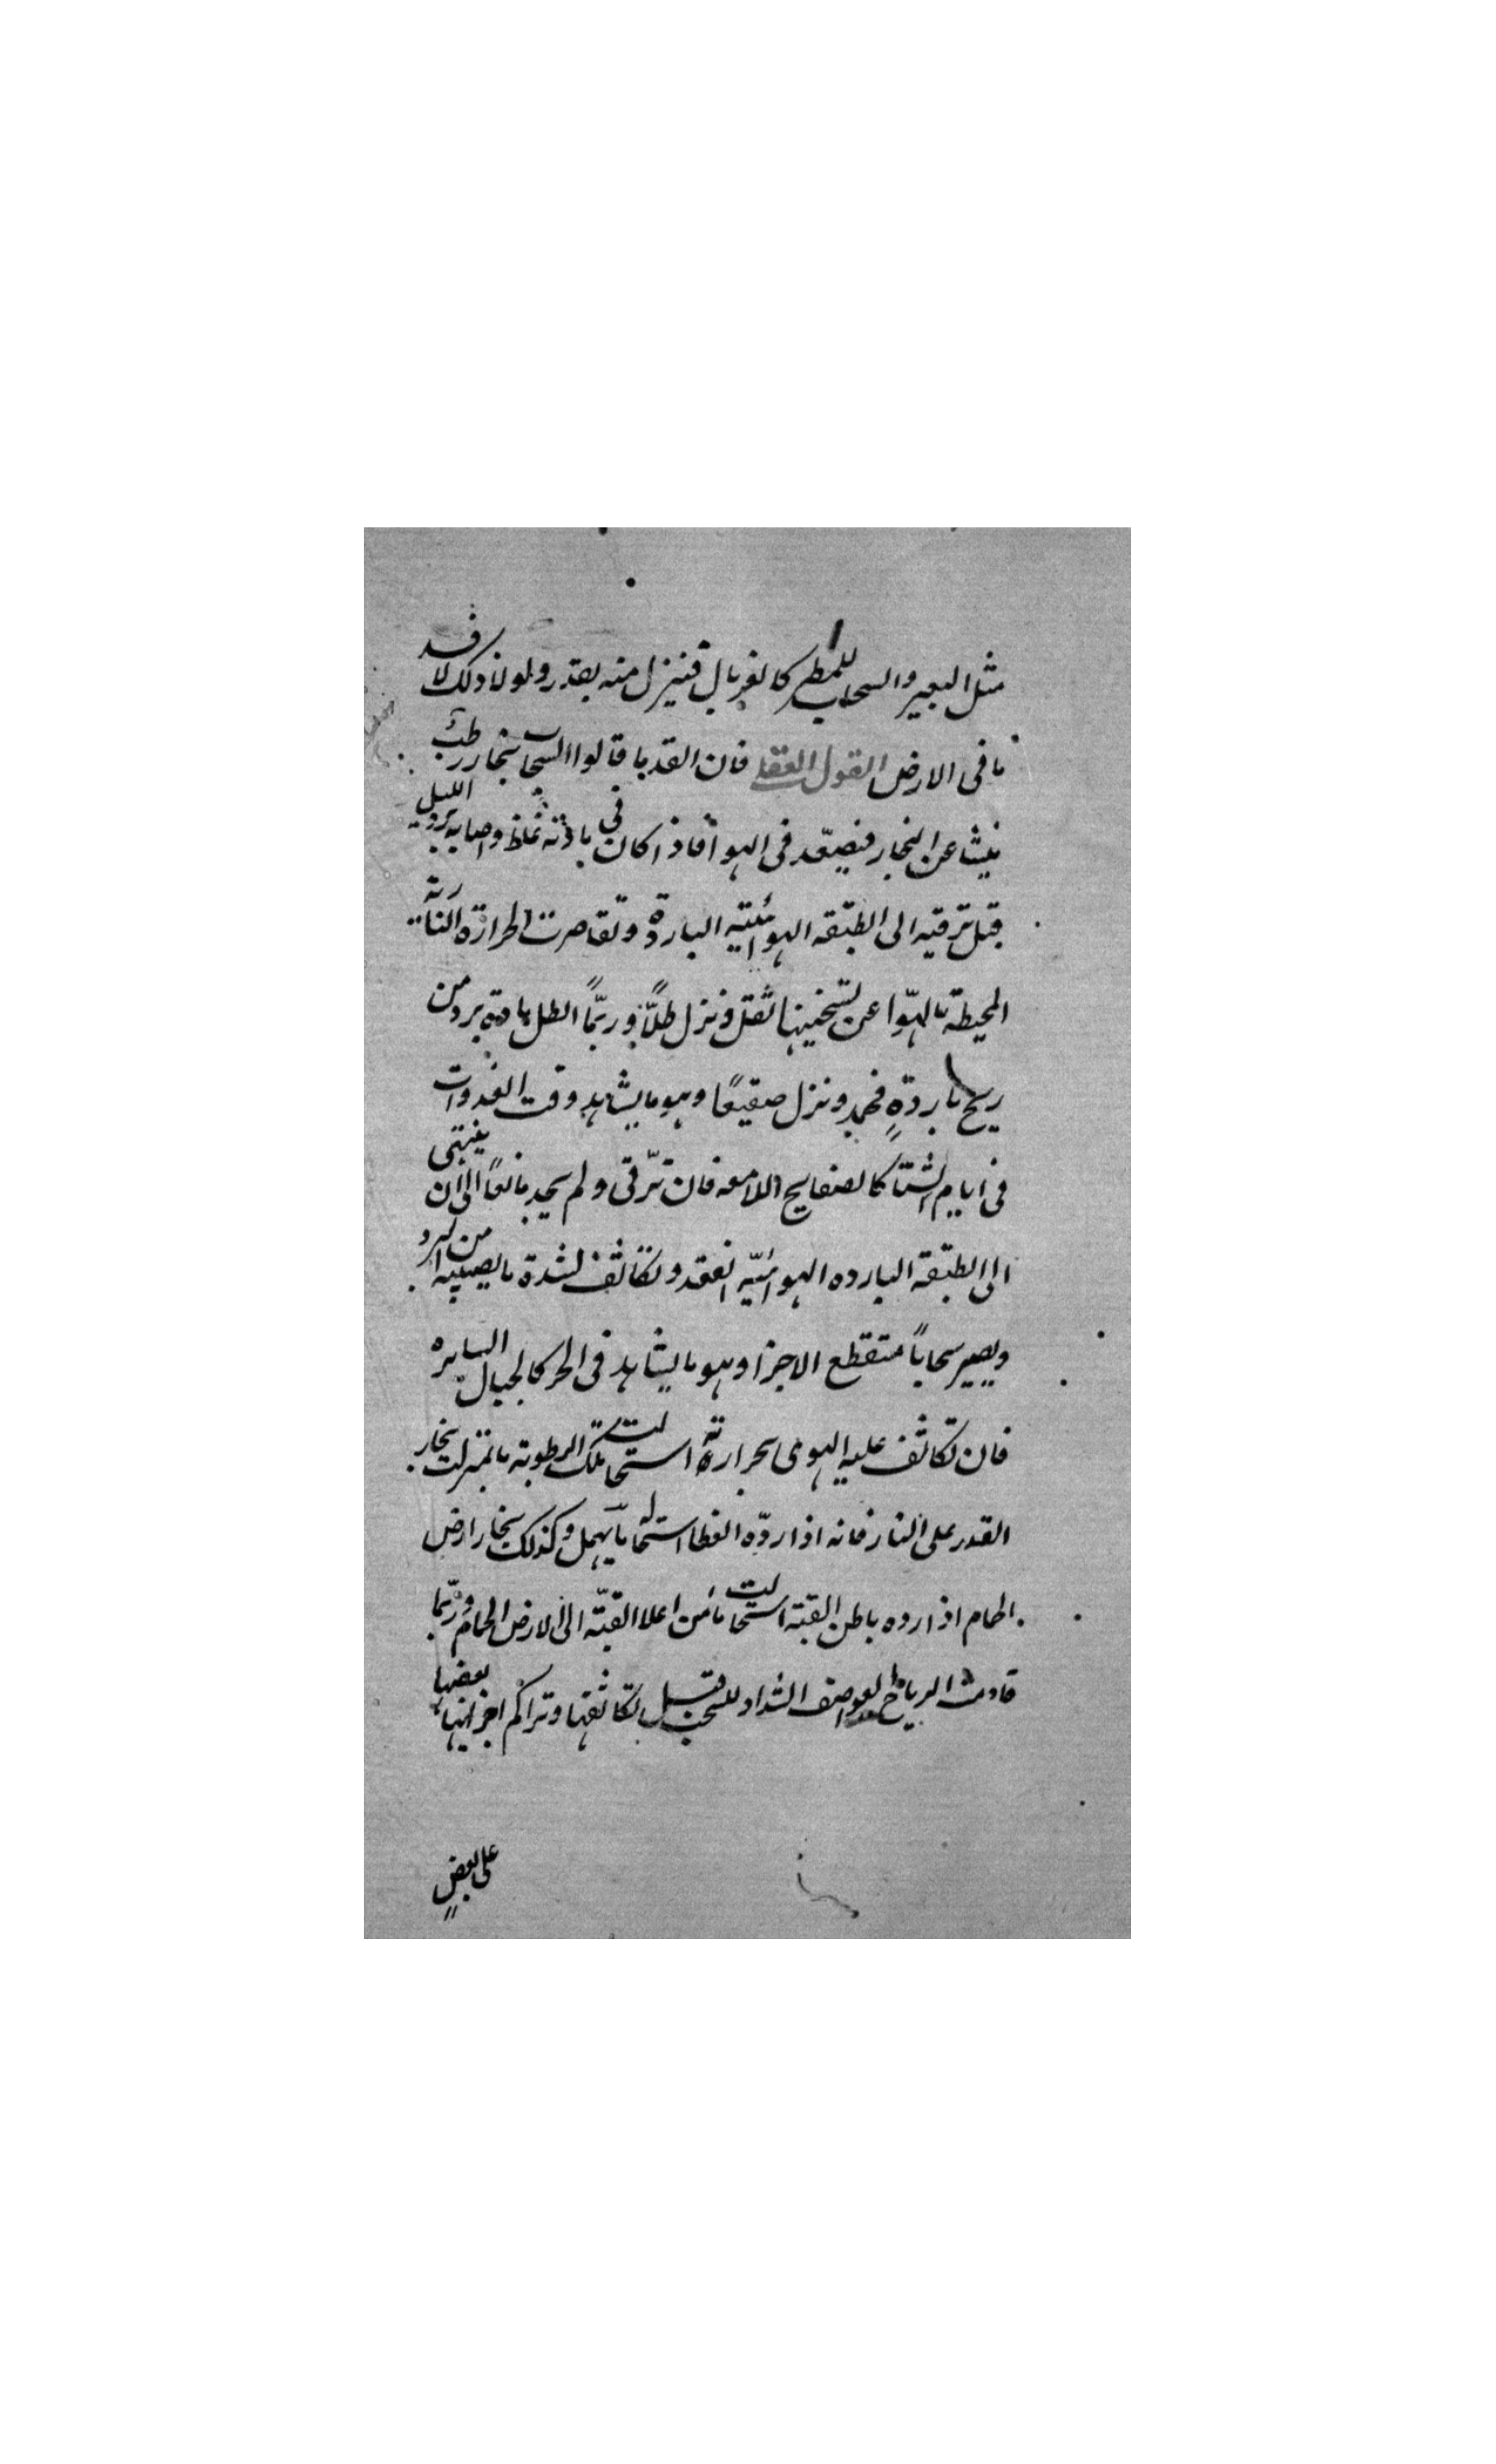 مثل البعير والسحاب للمطر كالغربال فينزل منه بقدر ولولا ذلك لافسد
ما فى الارض القول العقلى فان القدما قالوا السحاب بخار رطب
ينشا عن البخار فيصعد فى الهوا فاذا كان فى مادته غلظ واصابه برد الليل
قبل ترقيه الى الطبقه الهوائيه البارده وتقاصرت الحرارة النارية
المحيطة بالهوّا عن تسخينها ثقل ونزل طلًّا وربّما الطل مادته برد من
ريح باردةٍ فجمد ونزل صقيعًا وهو ما يشاهد وقت الغدوات
فى ايام الشتا كالصفايح اللامعه فان ترّقى ولم يجد مانعًا الى ان ينتهى
الى الطبقة البارده الهوائيّه انعقد وتكاثف لشدة ما يصيبه من البرد
ويصير سحاباً متقطع الاجزا وهو ما يشاهد فى الحر كالجبال السايره
فان تكاثف عليه الهوى بحرارته استحالت تلك الرطوبة ما بمنزلة بخار
القدر على النار فانه اذا ردّه الغطا استحال ماً يهمل وكذلك بخار ارض
الحمام اذا رده باطن القبة استحالت ما من اعلا القبّه الى الارض الحمام وربّما
قاومت الرياح العواصف الشداد للسحب قبل تكاثفها وتراكم اجزائها بعضها
على بعضٍ